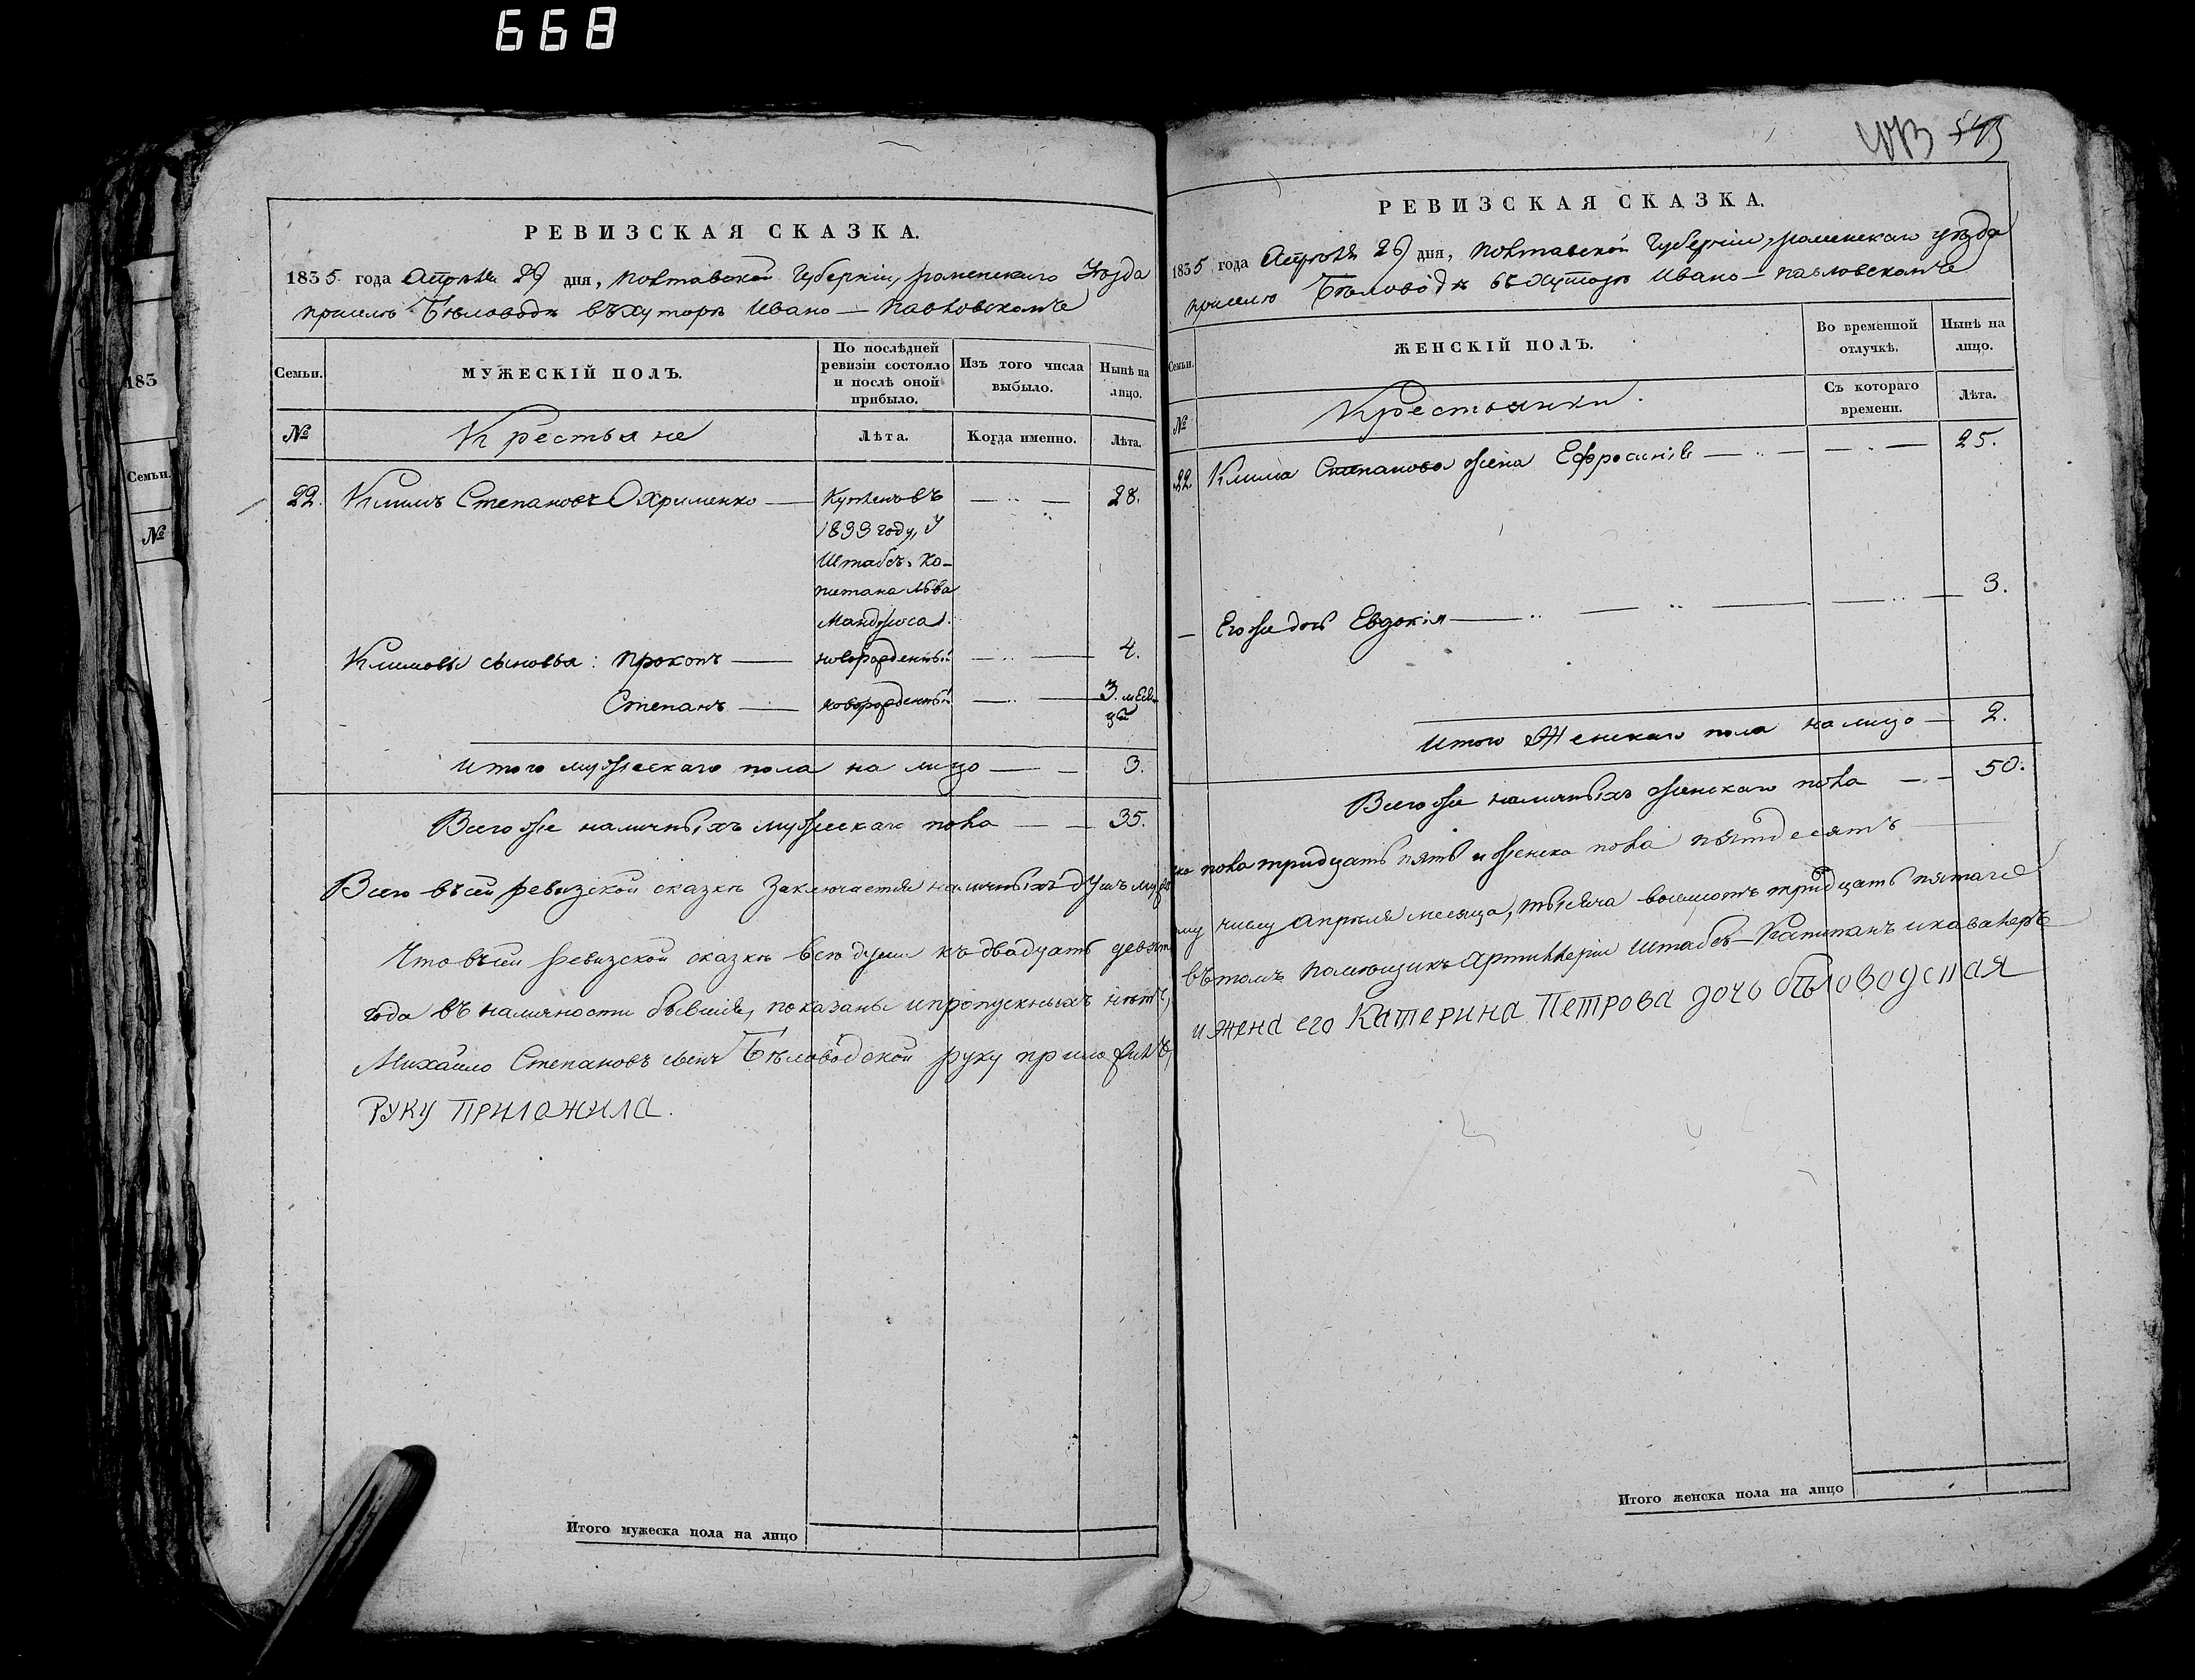 668
543
РЕВИЗСКАЯ СКАЗКА.
1835 года Апреля 29 дня, Полтавской Губерніи, роменскаго Уезда
приселе Беловодѣ въ хуторѣ Ивано — Павловскомъ
Семьи.
МУЖЕСКІЙ ПОЛЪ.
По послѣдней ревизіи состояло и послѣ оной прибыло.
Изъ того числа выбыло.
Нынѣ на лицо.
№
Крестьяне
Лѣта.
Когда именно.
Лѣта.
22. Климъ Степановъ Охрименко — Купленъ въ — 28.
1833 году, У
Штабсъ. Ка-
питана Льва
Климовы сыновья: Прокопъ — новорожденный — 4.
Степанъ — новорожденный — 3. меся-
ца
Итого мужескаго пола на лицо — 3.
Всего же наличныхъ мужескаго пола — 35.
Всего въ сей ревизской сказкѣ заключается наличныхъ душъ муже
Что въ сей ревизской сказкѣ всѣ души къ двадцать девято
года въ наличности бывшія, показаны и пропускныхъ нѣтъ,
Михайло Степановъ сынъ Бѣловодской руку приложилъ,
руку приложила.
Итого мужеска пола на лицо
РЕВИЗСКАЯ СКАЗКА.
1835 года Апреля 29 дня, Полтавской Губерніи, роменскаго уезда
приселе Беловодѣ въ хуторѣ Ивано — Павловскомъ
Семьи.
ЖЕНСКІЙ ПОЛЪ.
Во временной отлучкѣ.
Нынѣ на лицо.
№
Крестьянки.
Съ котораго времени.
Лѣта.
22 Клима Степанова жена Ефросинія — 25.
— Его же дочь Евдокія — 3.
Итого Женскаго пола на лицо — 2.
Всего же наличныхъ женскаго пола — 50.
ска пола тридцать пять и женска пола пятдесятъ
му числу апреля месяца, тысяча восемсотъ тридцать пятаго
въ томъ помещикъ Артиллеріи Штабсъ — Капитанъ и кавалеръ
и жена его Катерина Петрова дочь бѣловодская
Итого женска пола на лицо
185
Семьи.
№